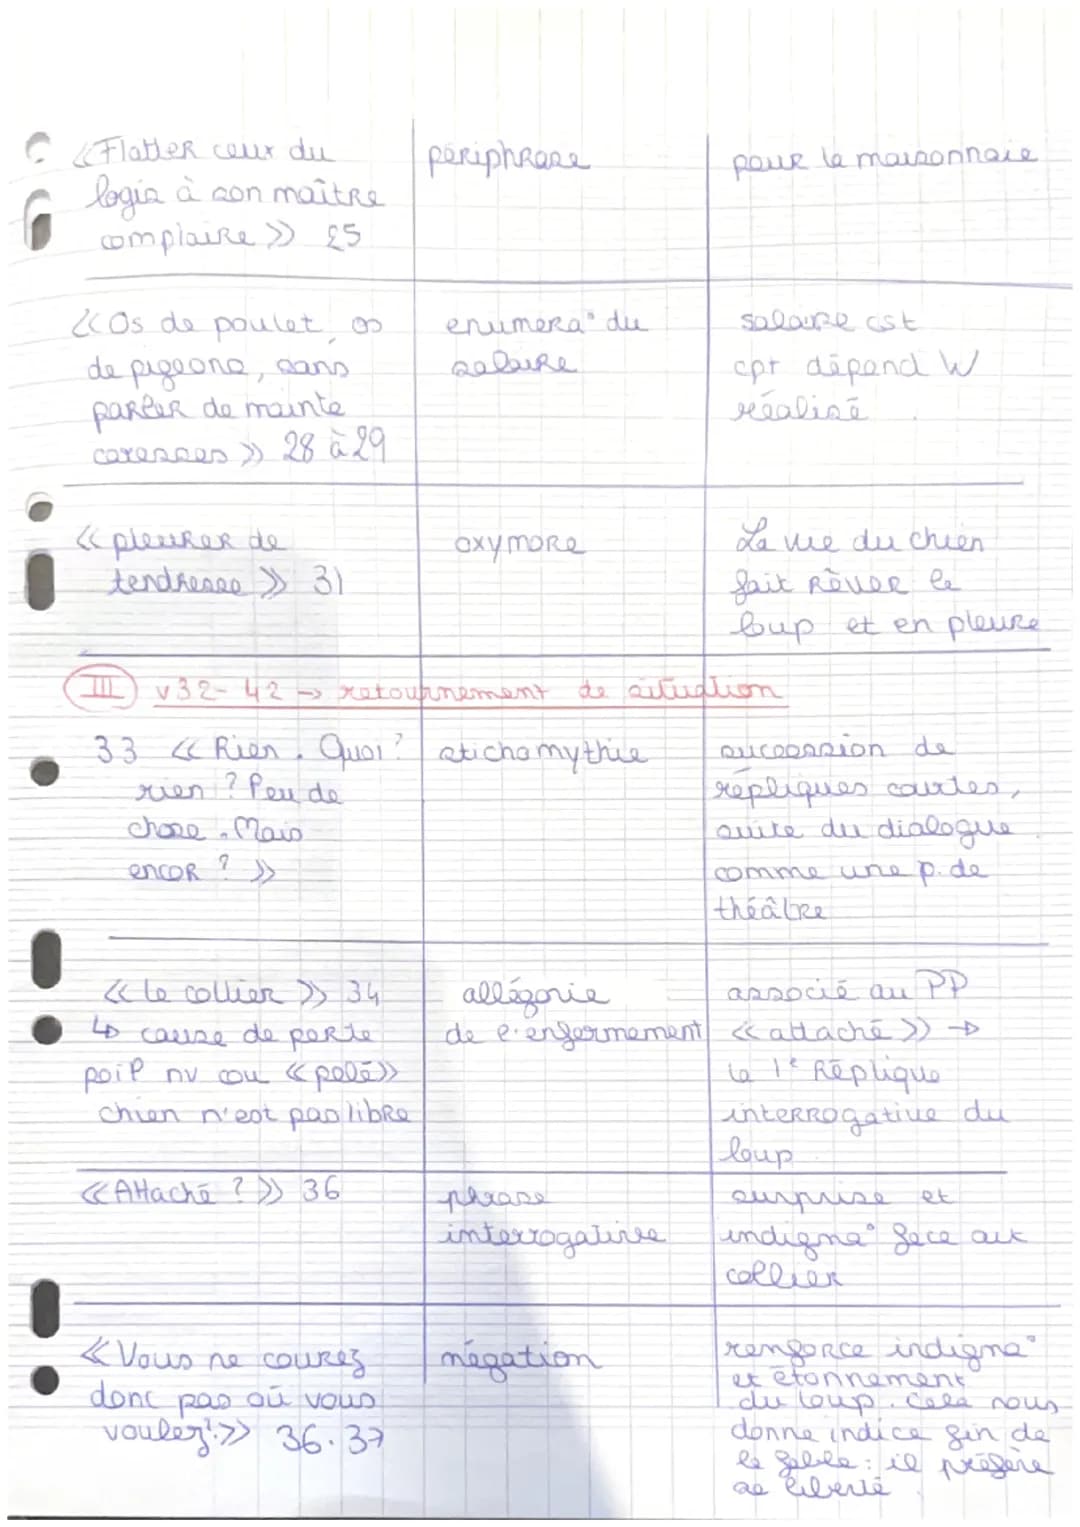 «Flatter ceux du
logis à son maître
complaire» 25
périphrase
pour la maisonnaie
«Os de poulet, os
de pigeons, sans
parler de mainte
caresses» 28 à 29
enuméra° du
salaire
salaire est
cpt dépend W
réalisé
«pleurer de
tendresse» 31
oxymore
La vie du chien
fait rêver le
loup et en pleure
III v32-42 → retournement de situation
33 «Rien. Quoi?
rien? Peu de
chose. Mais
encor?»
stichomythie
succession de
répliques courtes,
suite du dialogue
comme une p. de
théâtre
«le collier» 34
↳ cause de perte
poil nv cou «pelé»
chien n'est pas libre
allégorie
de l'enfermement
associé au PP
«attaché» →
la 1e Réplique
interrogative du
loup
«Attaché?» 36
phrase
interrogative
surprise et
indigna° face au
collier
«Vous ne courez
donc pas où vous
voulez?» 36.37
négation
renforce indigna°
et étonnement
du loup. Cela nous
donne indice fin de
la fable: il préfère
sa liberté